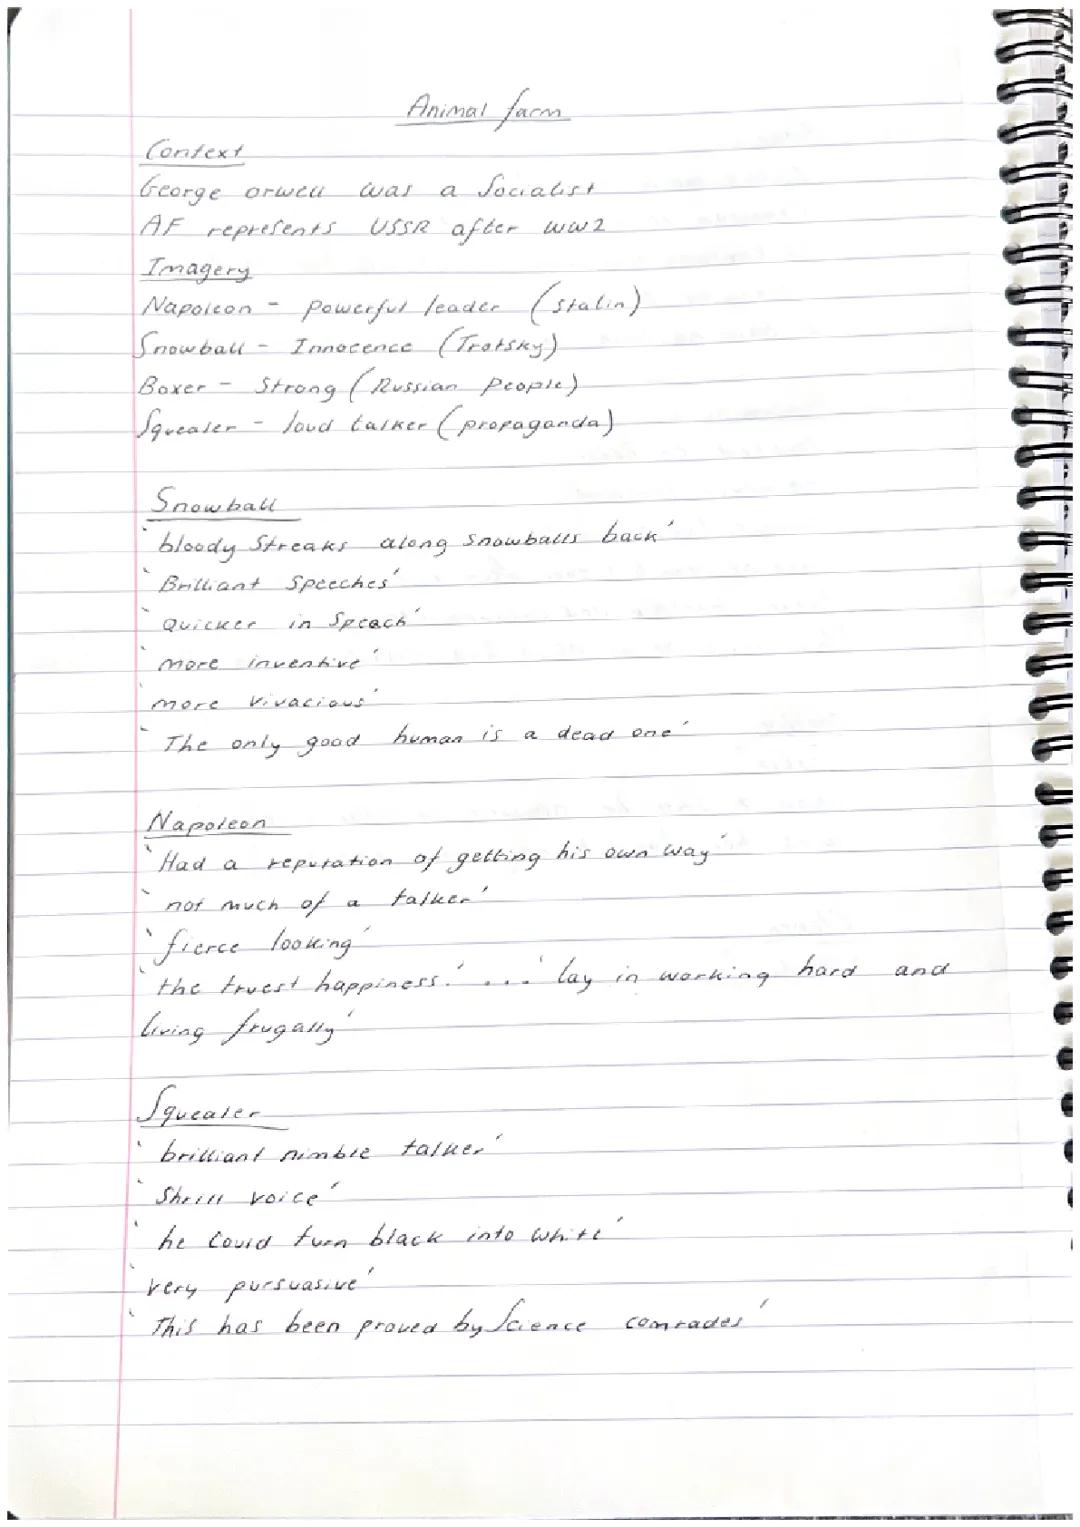 Animal farm
Context
George orwell was a Socialist
AF represents USSR after WW2
Imagery
Napoleon - Powerful leader (Stalin)
Snowball - Innocence (Trotsky)
Boxer - Strong (Russian People)
Squealer - loud talker (propaganda)
Snowball
'bloody Streaks along Snowballs back'
'Brilliant Speeches'
'Quicker in Speach'
'more inventive'
'more vivacious'
'The only good human is a dead one'
Napoleon
'Had a reputation of getting his own way'
'not much of a talker'
'fierce looking'
'the truest happiness.' ... 'lay in working hard and
living frugally'
Squealer
'brilliant nimble talker'
'Shrill voice'
'he Could turn black into white'
'very pursuasive'
'This has been proved by Science comrades'